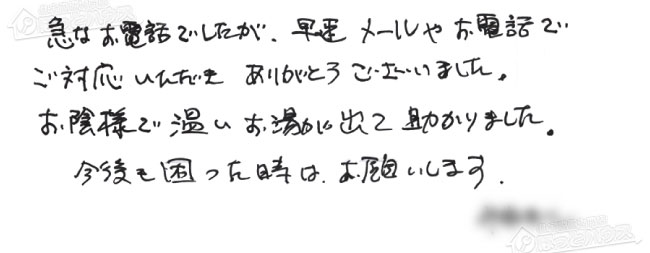 急なお電話でしたが、早速メールやお電話で
ご対応いただき ありがとうございました。
お陰様で温いお湯が出て助かりました。
今後も困った時は、お願いします.